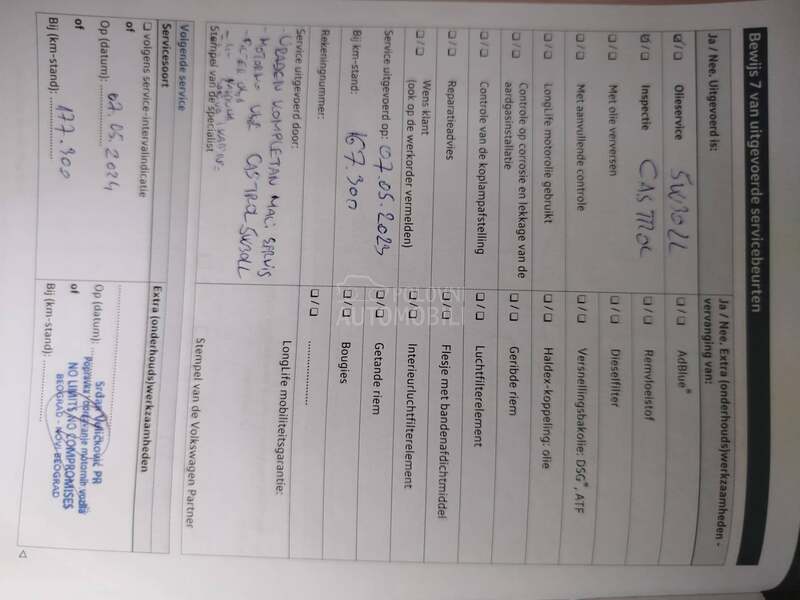 Bewijs 7 van uitgevoerde servicebeurten
Ja / Nee. Uitgevoerd is:
☑ / ☐ Olieservice 5W30LL
☑ / ☐ Inspectie CASTROL
☐ / ☐ Met olie verversen
☐ / ☐ Met aanvullende controle
☐ / ☐ LongLife motorolie gebruikt
☐ / ☐ Controle op corrosie en lekkage van de
aardgasinstallatie
☐ / ☐ Controle van de koplampafstelling
☐ / ☐ Reparatieadvies
☐ / ☐ Wens klant
(ook op de werkorder vermelden)
Service uitgevoerd op: 07.05.2023
Bij km-stand: 167.300
Rekeningnummer:
Service uitgevoerd door:
URADJEN KOMPLETAN MALI SERVIS
- MOTORNO ULJE CASTROL 5W30LL
- FILTER ULJA
Stempel van de specialist
Ja / Nee. Extra (onderhouds)werkzaamheden -
vervanging van:
☐ / ☐ AdBlue®
☐ / ☐ Remvloeistof
☐ / ☐ Dieselfilter
☐ / ☐ Versnellingsbakolie: DSG®, ATF
☐ / ☐ Haldex-koppeling: olie
☐ / ☐ Geribde riem
☐ / ☐ Luchtfilterelement
☐ / ☐ Flesje met bandenafdichtmiddel
☐ / ☐ Interieurluchtfilterelement
☐ / ☐ Getande riem
☐ / ☐ Bougies
☐ / ☐ ....................
LongLife mobiliteitsgarantie:
Stempel van de Volkswagen Partner
Volgende service
Servicesoort
☐ volgens service-intervalindicatie
of
Op (datum): 07.05.2024
of
Bij (km-stand): 177.300
Extra (onderhouds)werkzaamheden
Op (datum):
of
Bij (km-stand):
PR
Popravka i održavanje motornih vozila
NO LIMITS NO COMPROMISES
BEOGRAD - NOVI BEOGRAD
POLOVNI
AUTOMOBILI